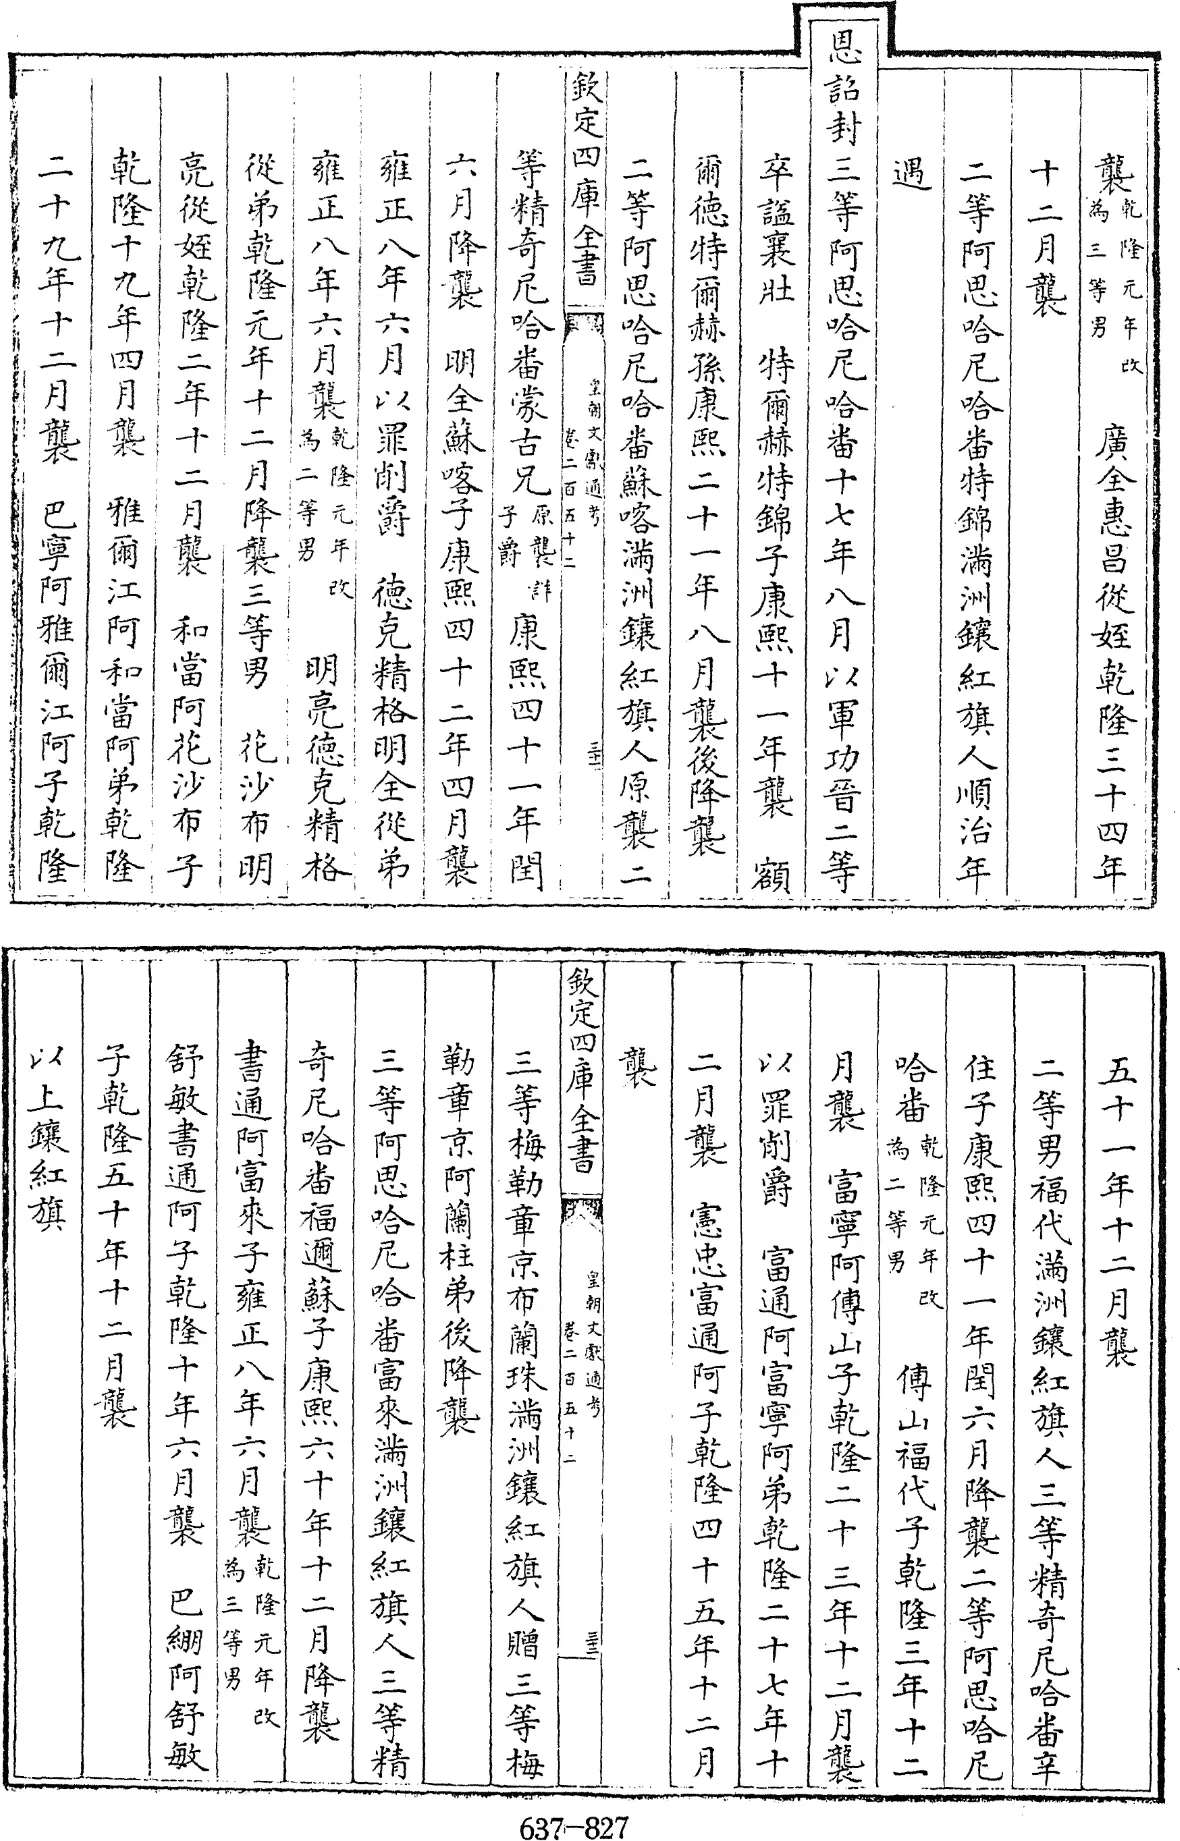 襲乾隆元年改為三等男　廣全惠昌從姪乾隆三十四年
十二月襲
二等阿思哈尼哈番特錦滿洲鑲紅旗人順治年
遇
恩詔封三等阿思哈尼哈番十七年八月以軍功晉二等
卒諡襄壯　特爾赫特錦子康熙十一年襲　額
爾德特爾赫孫康熙二十一年八月襲後降襲
二等阿思哈尼哈番蘇喀滿洲鑲紅旗人原襲二
欽定四庫全書　皇朝文獻通考卷二百五十二　三十二
等精奇尼哈番蒙古兄原襲詳子爵康熙四十一年閏
六月降襲　明全蘇喀子康熙四十二年四月襲
雍正八年六月以罪削爵　德克精格明全從弟
雍正八年六月襲乾隆元年改為二等男　明亮德克精格
從弟乾隆元年十二月降襲三等男　花沙布明
亮從姪乾隆二年十二月襲　和當阿花沙布子
乾隆十九年四月襲　雅爾江阿和當阿弟乾隆
二十九年十二月襲　巴寧阿雅爾江阿子乾隆
五十一年十二月襲
二等男福代滿洲鑲紅旗人三等精奇尼哈番辛
住子康熙四十一年閏六月降襲二等阿思哈尼
哈番乾隆元年改為二等男　傅山福代子乾隆三年十二
月襲　富寧阿傅山子乾隆二十三年十二月襲
以罪削爵　富通阿富寧阿弟乾隆二十七年十
二月襲　憲忠富通阿子乾隆四十五年十二月
襲
欽定四庫全書　皇朝文獻通考卷二百五十二　三十三
三等梅勒章京布蘭珠滿洲鑲紅旗人贈三等梅
勒章京阿蘭柱弟後降襲
三等阿思哈尼哈番富來滿洲鑲紅旗人三等精
奇尼哈番福邇蘇子康熙六十年十二月降襲
書通阿富來子雍正八年六月襲乾隆元年改為三等男
舒敏書通阿子乾隆十年六月襲　巴綳阿舒敏
子乾隆五十年十二月襲
以上鑲紅旗
637-827